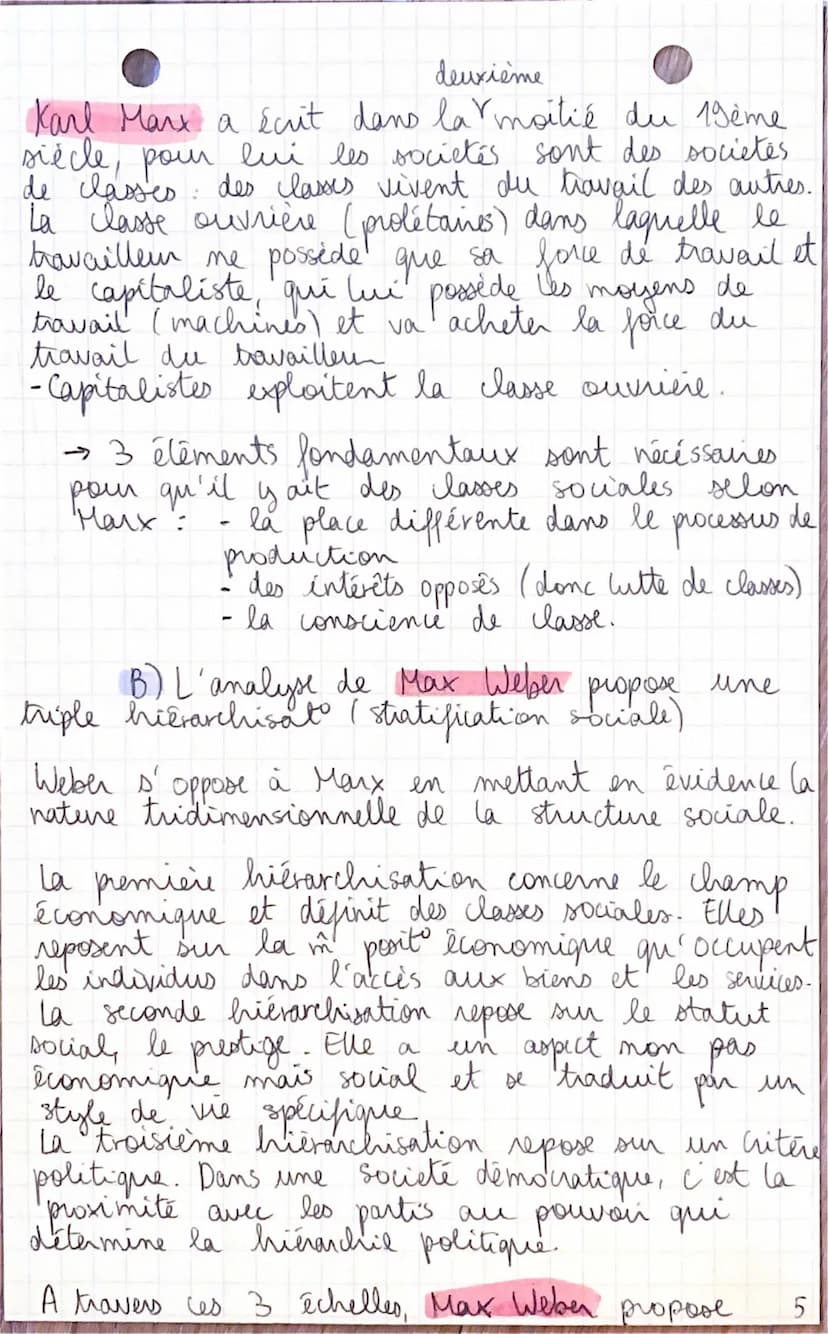 deuxième
Karl Marx a écrit dans la moitié du 19ème
siècle, pour lui les sociétés sont des sociétés
de classes : des classes vivent du travail des autres.
La classe ouvrière (prolétaires) dans laquelle le
travailleur ne possède que sa force de travail et
le capitaliste, qui lui possède les moyens de
travail (machines) et va acheter la force du
travail du travailleur
- Capitalistes exploitent la classe ouvrière.
→ 3 éléments fondamentaux sont nécéssaires
pour qu'il y ait des classes sociales selon
Marx : - la place différente dans le processus de
production
- des intérêts opposés (donc lutte de classes)
- la conscience de classe.
B) L'analyse de Max Weber propose une
triple hiérarchisat° (stratification sociale)
Weber s'oppose à Marx en mettant en évidence la
nature tridimensionnelle de la structure sociale.
La première hiérarchisation concerne le champ
économique et définit des classes sociales. Elles
reposent sur la m̂ posit° économique qu'occupent
les individus dans l'accès aux biens et les services.
La seconde hiérarchisation repose sur le statut
social, le prestige. Elle a un aspect non pas
économique mais social et se traduit par un
style de vie spécifique
La troisième hiérarchisation repose sur un critère
politique. Dans une société démocratique, c'est la
proximité avec les partis au pouvoir qui
détermine la hiérarchie politique.
A travers ces 3 échelles, Max Weber propose 5